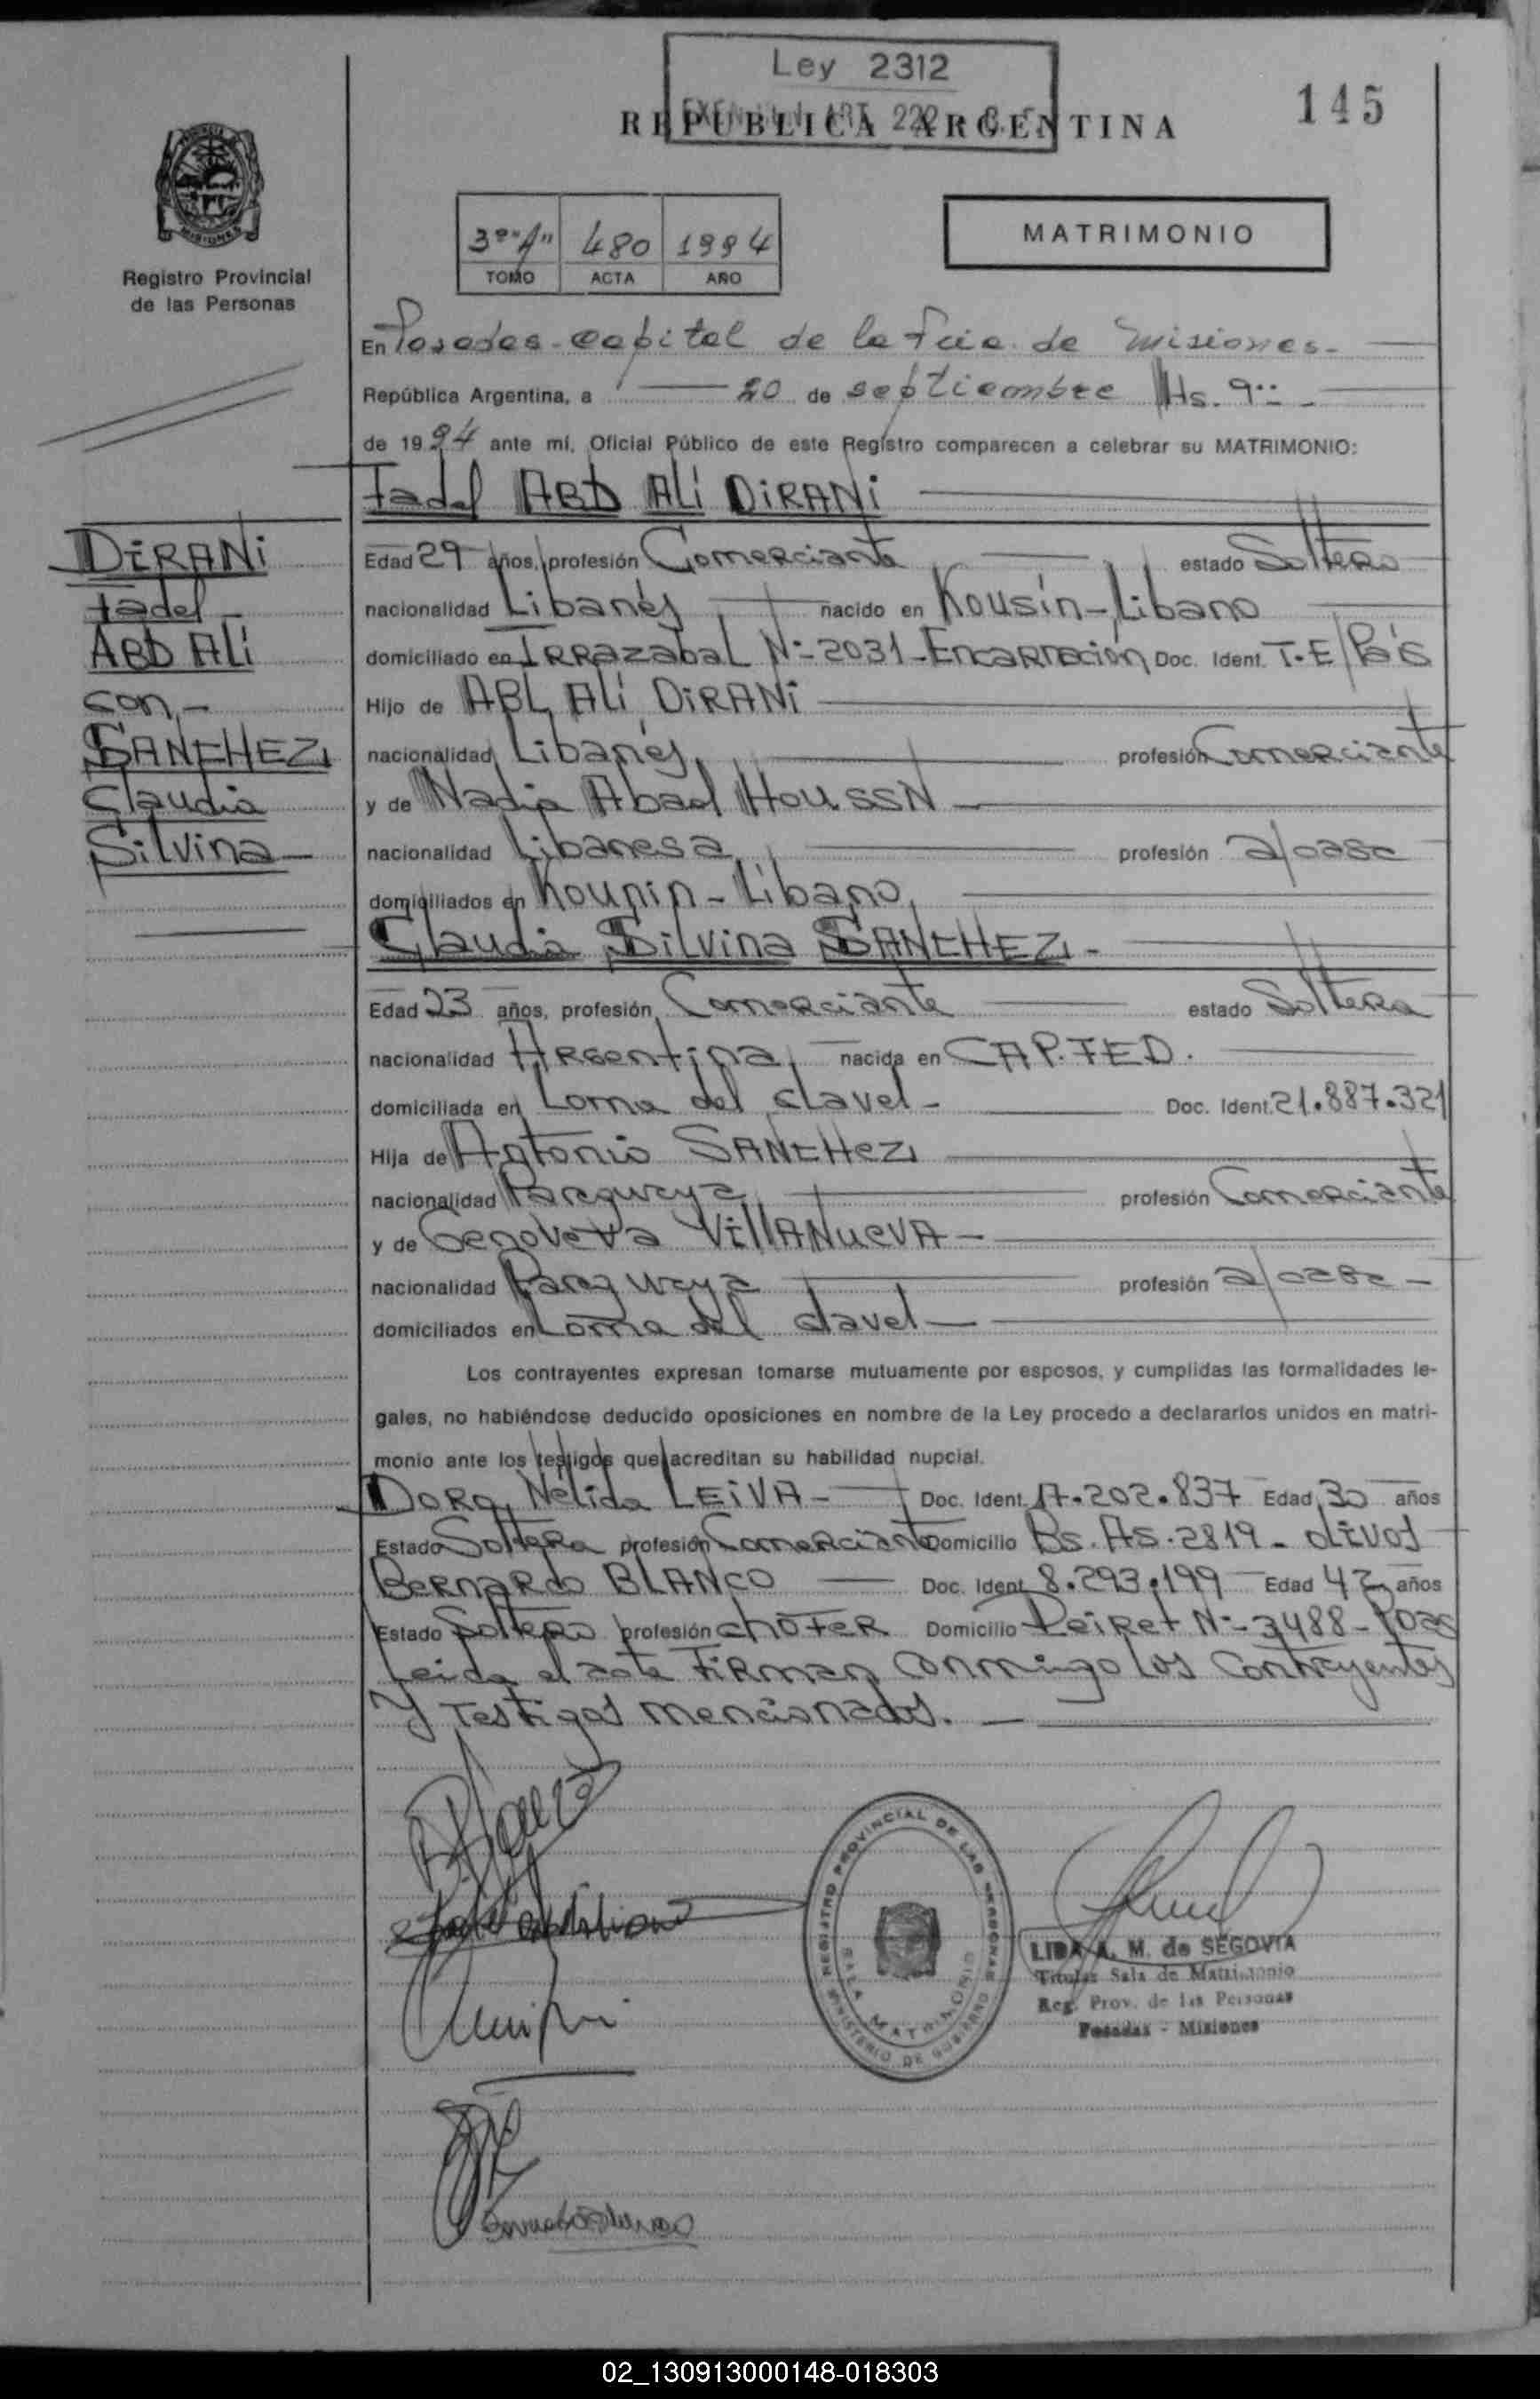 Ley 2312
REPUBLICA ARGENTINA
145
3º "A" 480 1994
TOMO ACTA AÑO
MATRIMONIO
Registro Provincial
de las Personas
En Posadas - Capital de la Pcia. de Misiones -
República Argentina, a 20 de septiembre Hs. 9
de 1994 ante mí, Oficial Público de este Registro comparecen a celebrar su MATRIMONIO:
Fadel ABD ALi DiRANi
DiRANi
Fadel
ABD ALi
con -
SANCHEZ
Claudia
Silvina
Edad 29 años, profesión Comerciante estado Soltero
nacionalidad Libanés nacido en Kousin - Libano
domiciliado en IRRazabaL Nº 2031 - Encarnación Doc. Ident. T.E/País
Hijo de ABL ALi DiRANi
nacionalidad Libanés profesión Comerciante
y de Nadia Abad HoussN
nacionalidad Libanesa profesión a/casa
domiciliados en Kounin - Libano
Claudia Silvina SANCHEZ -
Edad 23 años, profesión Comerciante estado Soltera
nacionalidad Argentina nacida en CAP. FED.
domiciliada en Loma del clavel - Doc. Ident. 21.887.321
Hija de Antonio SANCHEZ
nacionalidad Paraguaya profesión Comerciante
y de Genoveva VillANuevA -
nacionalidad Paraguaya profesión a/casa -
domiciliados en Loma del clavel -
Los contrayentes expresan tomarse mutuamente por esposos, y cumplidas las formalidades le-
gales, no habiéndose deducido oposiciones en nombre de la Ley procedo a declararlos unidos en matri-
monio ante los testigos que acreditan su habilidad nupcial.
Dora Nélida LEiVA - Doc. Ident. 17.202.837 Edad 30 años
Estado Soltera profesión Comerciante Domicilio Bs. As. 2819 - olivos
Bernardo BLANCO Doc. Ident. 8.293.199 Edad 42 años
Estado Soltero profesión choFeR Domicilio Peiret Nº 3488 - Pdas
Leida el acta Firman conmigo los contrayentes
Y Testigos mencionados. -
REGISTRO PROVINCIAL DE LAS PERSONAS
SALA MATRIMONIO
MINISTERIO DE GOBIERNO
LIDA A. M. de SEGOVIA
Titular Sala de Matrimonio
Reg. Prov. de las Personas
Posadas - Misiones
02_130913000148-018303